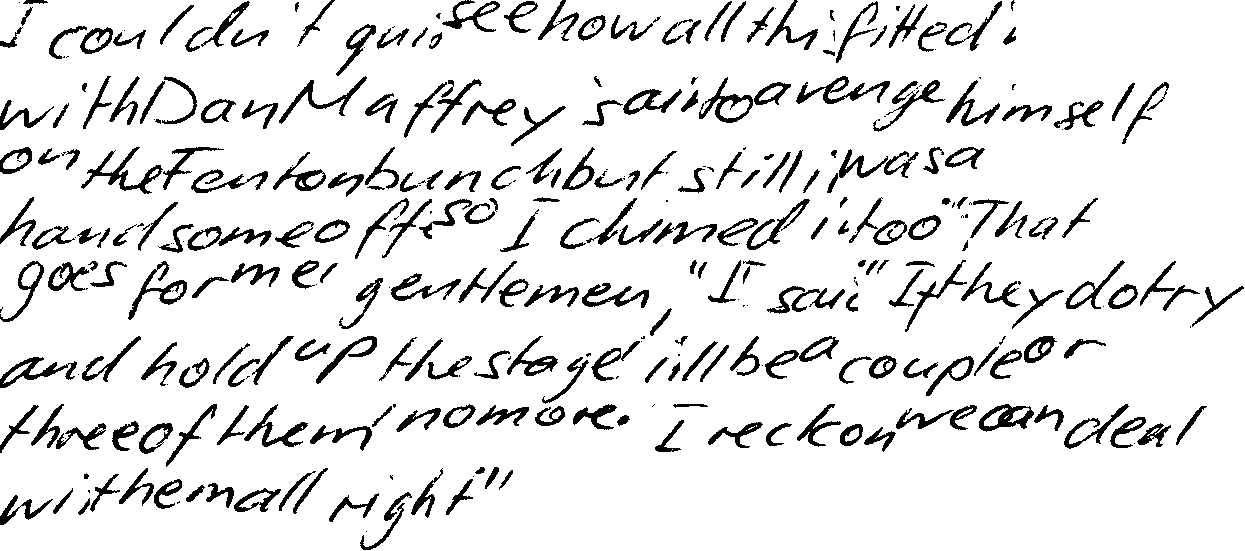 I couldn't quite see how all this fitted in
with Dan Maffrey's aim to avenge himself
on the Fenton bunch but still it was a
handsome offer so I chimed in too. "That
goes for me, gentlemen," I said. "If they do try
and hold up the stage it'll be a couple or
three of them, no more. I reckon we can deal
with them all right"